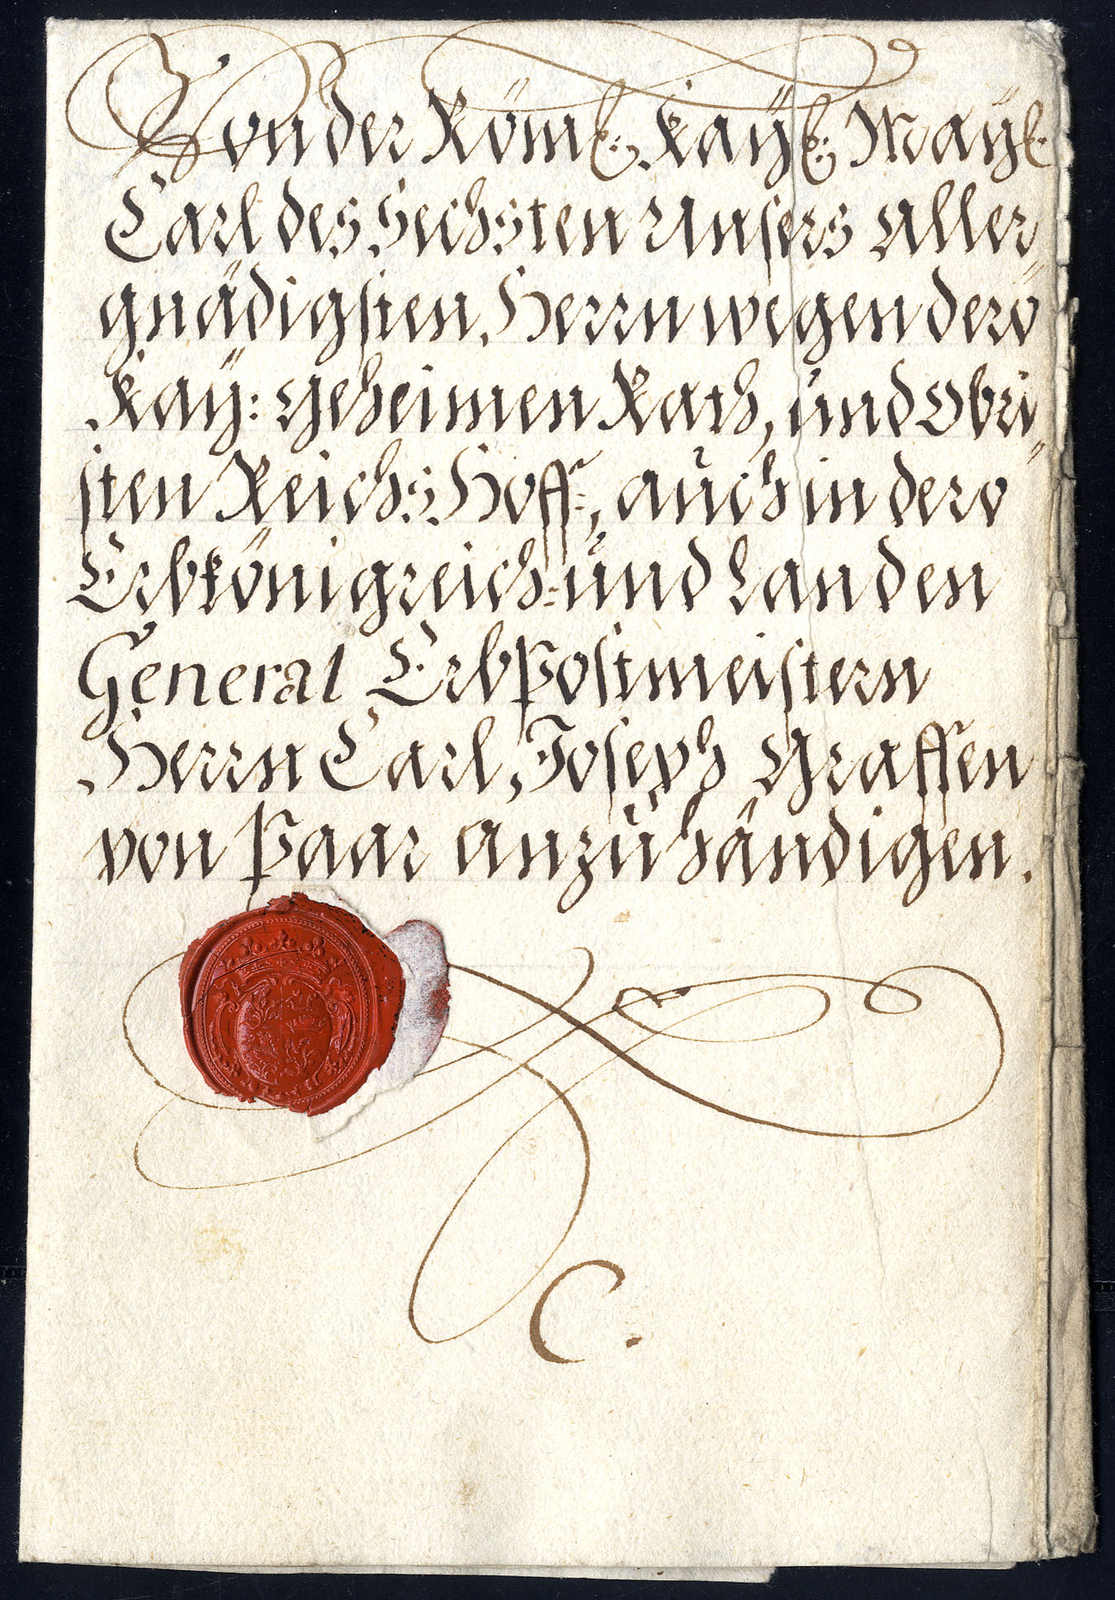 Von der Röml: Kayl: Mayl:
Carl des Sechsten Unsers Aller
gnädigsten Herrn wegen dero
Kay: Geheimen Rath, und Obri
sten Reichs Hoff=, auch in dero
Erbkönigreich= und Landen
General Erbpostmeistern
Herrn Carl Joseph Graffen
von Paar anzuhändigen.
C.